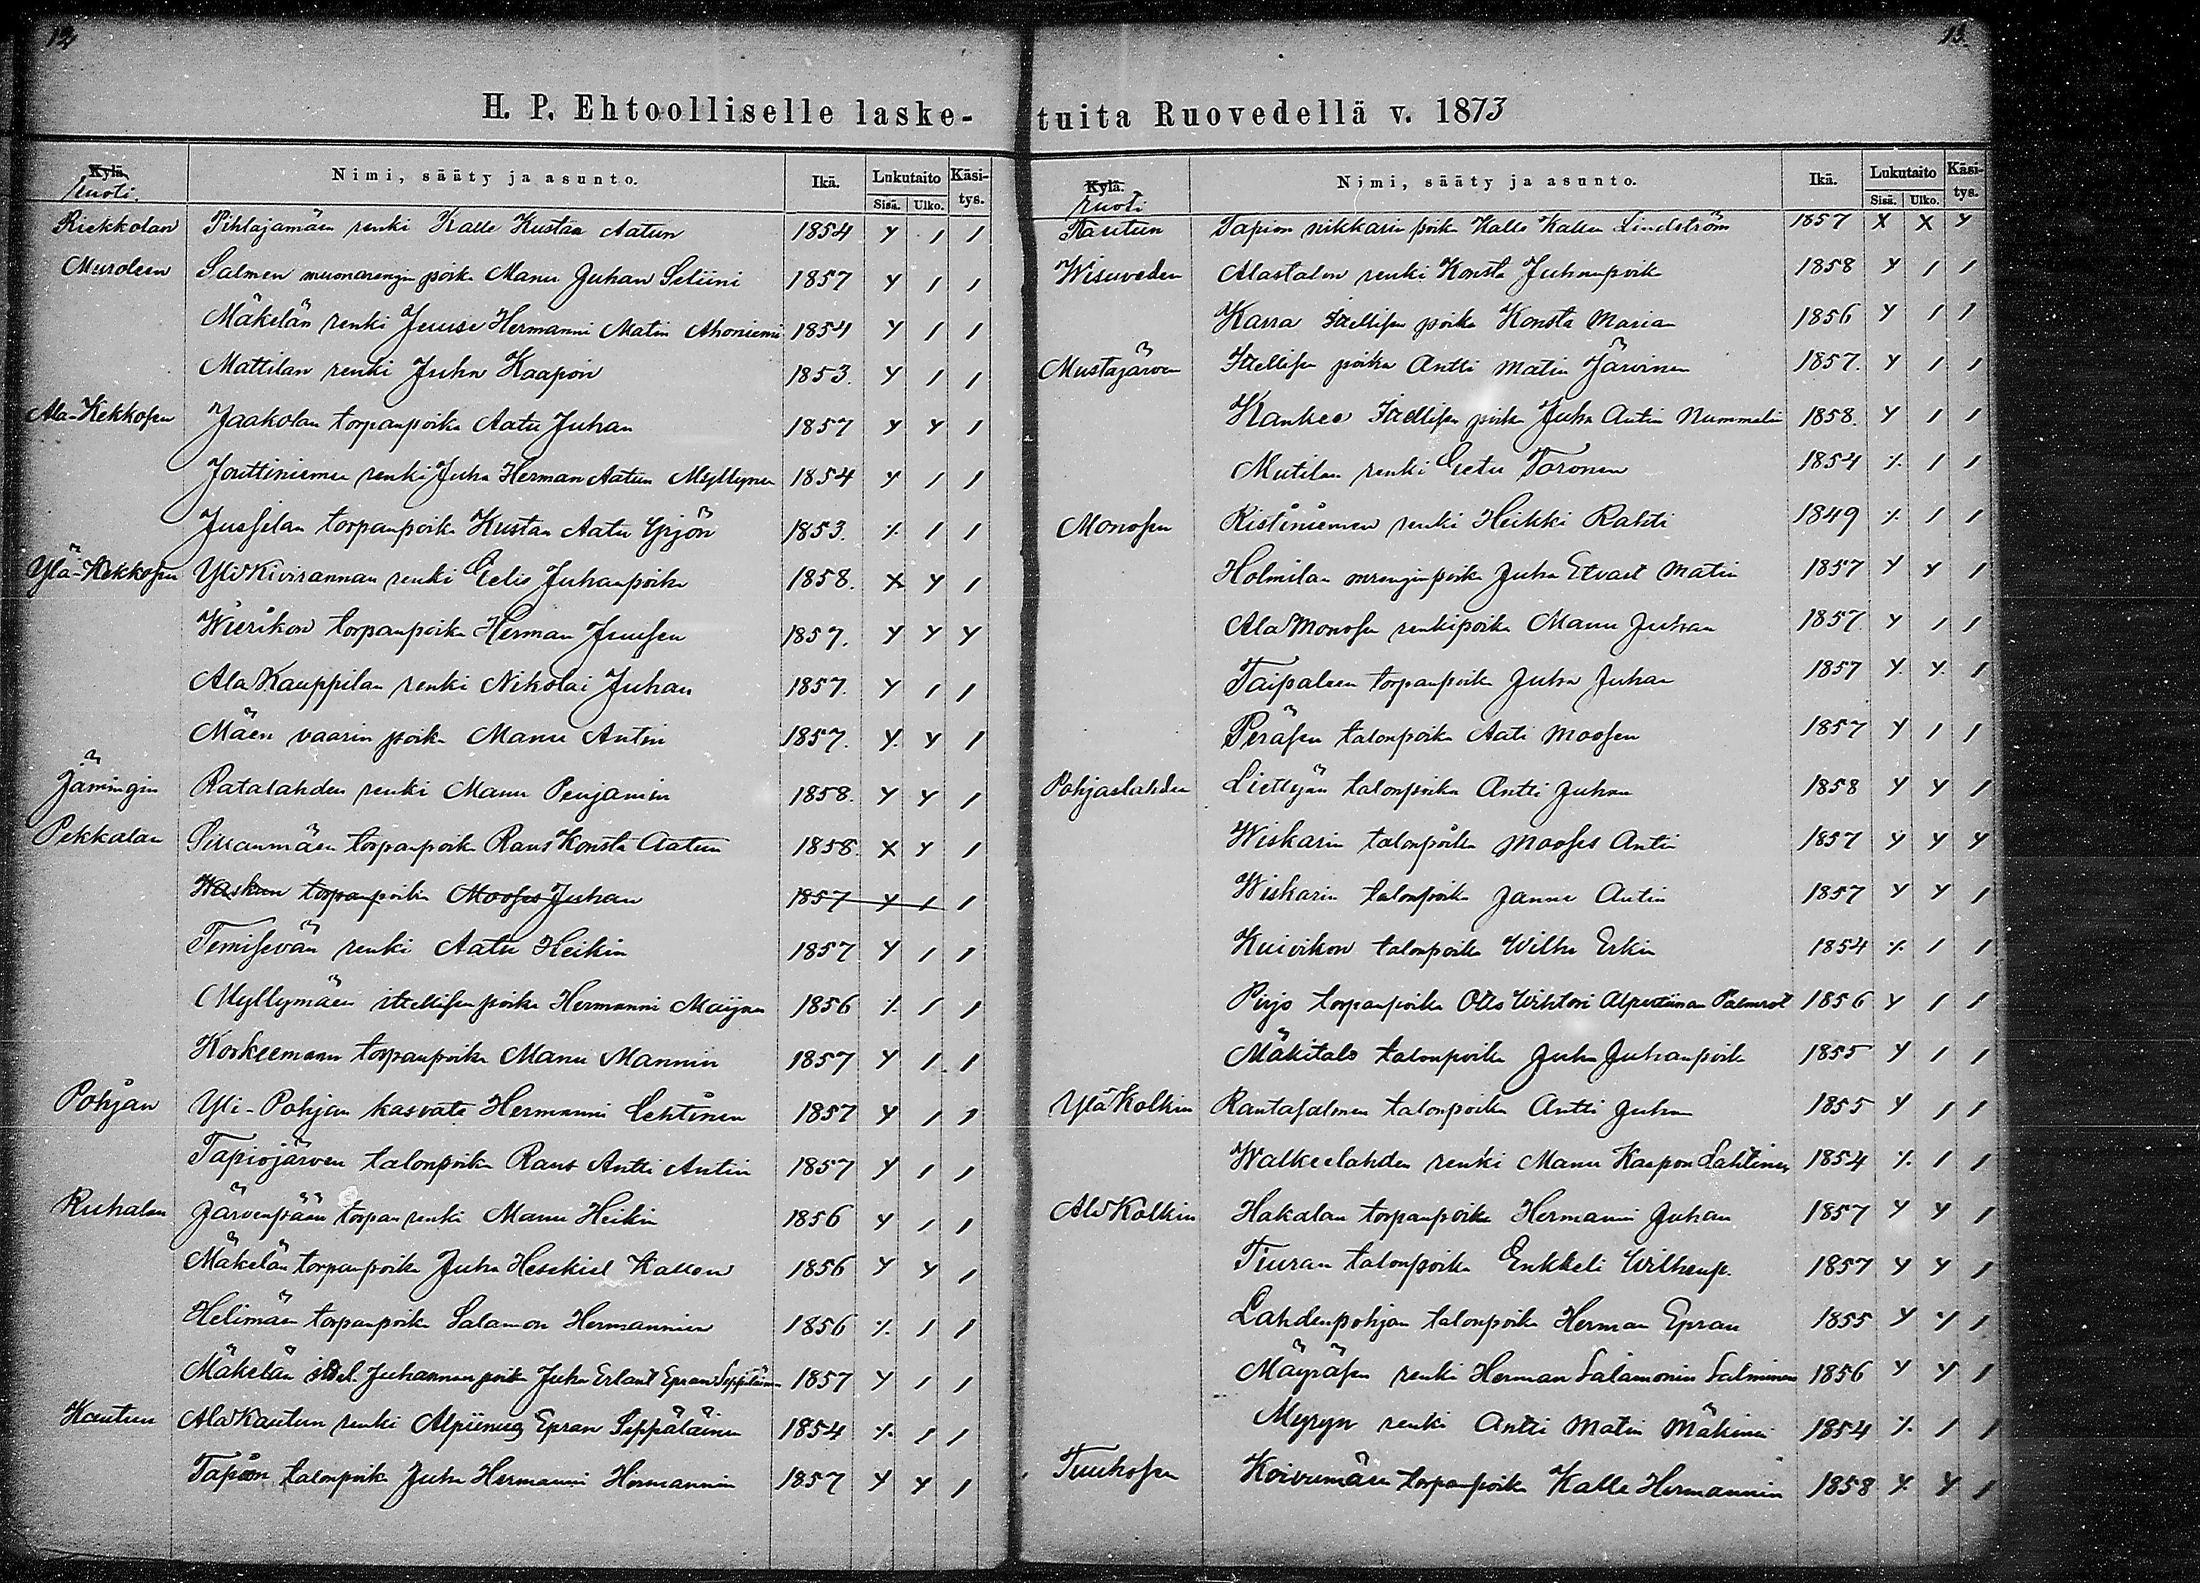 12
H. P. Ehtoolliselle laske-
Kylä. Ruoti. Nimi, sääty ja asunto. Ikä. Lukutaito Käsi-tys.
Sisä. Ulko.
Riekkolan Pihlajamäen renki Kalle Kustaa Aatun 1854 y 1 1
Muroleen Salmen muonarengin poik. Manu Juhan Seliini 1857 y 1 1
Mäkelän renki Juuse Hermanni Matin Ahoniemi 1854 y 1 1
Mattilan renki Juha Kaapon 1853. y 1 1
Ala-Kekkosen Jaakolan torpanpoika Aatu Juhan 1857 y y 1
Jouttiniemen renki Juha Herman Aatun Myllynen 1854 y 1 1
Jussilan torpanpoik Kustaa Aatu Yrjön 1853. % 1 1
Ylä-Kekkosen Yli Kivirannan renki Eelis Juhanpoika 1858. x y 1
Wierikon torpanpoika Herman Juusen 1857. y y y
Ala Kauppilan renki Nikolai Juhan 1857. y 1 1
Mäen vaarin poik. Manu Antin 1857. y. y 1
Jämingin Ratalahden renki Manu Penjamin 1858. y y 1
Pekkalan torpanpoik Rans Konsta Aatun 1858. x y 1
Waskun torpanpoika Mooses Juhan 1857 y 1 1
Temisevän renki Aatu Heikin 1857 y 1 1
Myllymäen itsellisen poika Hermanni Maijan 1856 % 1 1
Korkeemaan torpanpoika Manu Mannin 1857 y 1 1
Pohjan Yli-Pohjan kasvate Hermanni Lehtinen 1857 y 1 1
Tapiojärven talonpoika Rans Antti Antin 1857 y 1 1
Ruhalan Järvenpään torpan renki Manu Heikin 1856 y 1 1
Mäkelän torpanpoika Juha Hesekiel Kallen 1856 y y 1
Helimäen torpanpoik. Salamon Hermannin 1856 % 1 1
Mäkelän itsel. Juhannan poika Juha Erlant Epran Seppäläinen 1857 y 1 1
Kautun Ala Kautun renki Epran Seppäläinen 1854 % 1 1
Tapion talonpoik. Juha Hermanni Hermannin 1857 y y 1
13.
tuita Ruovedellä v. 1873
Kylä. Ruoti Nimi, sääty ja asunto. Ikä. Lukutaito Käsi-tys.
Sisä. Ulko.
Kautun Tapion nikkarin poika Kalle Kallen Lindström 1857 x x y
Wisuveden Alastalon renki Konsta Juhanpoik 1858 y 1 1
Karra Itsellisen poika Konsta Marian 1856 y 1 1
Mustajärven Itsellisen poika Antti Matin Järvinen 1857. y 1 1
Kankee Itsellisen poika Juha Antin Nummelin 1858. y 1 1
Mutilan renki Eetu Toronen 1854 % 1 1
Monosen Ristiniemen renki Heikki Rahti 1849 % 1 1
Holmilan mrenginpoika Juha Etvart Matin 1857 y y 1
Ala Monosen renkipoika Manu Juhan 1857. y 1 1
Taipaleen torpanpoik. Juha Juhan 1857 y. y. 1
Peräsen talonpoika Aati Moosen 1857 y 1 1
Pohjaslahden Liettyän talonpoika Antti Juhan 1858 y y 1
Wiskarin talonpoika Mooses Antin 1857 y y y
Wiskarin talonpoika Janne Antin 1857 y y 1
Kuivikon talonpoik. Wilhe Erkin 1854 % 1 1
Pirjo torpanpoika Otto Wihtori Palmrot 1856 y 1 1
Mäkitalo talonpoika Juha Juhanpoik 1855 y 1 1
Ylä Kolkin Rantasalmen talonpoika Antti Juhan 1855 y 1 1
Walkeelahden renki Manu Kaapon Lahtinen 1854 % 1 1
Ala Kolkin Hakalan torpanpoika Hermanni Juhan 1857 y y 1
Tiuran talonpoika Enkkeli Wilhenp. 1857 y y 1
Lahdenpohjan talonpoik. Herman Epran 1855 y y 1
Mäyräsen renki Herman Salamonin Salminen 1856 y y 1
Myryn renki Antti Matin Mäkinen 1854 % 1 1
Tuuhosen Koivumäen torpanpoika Kalle Hermannin 1858 y. y 1